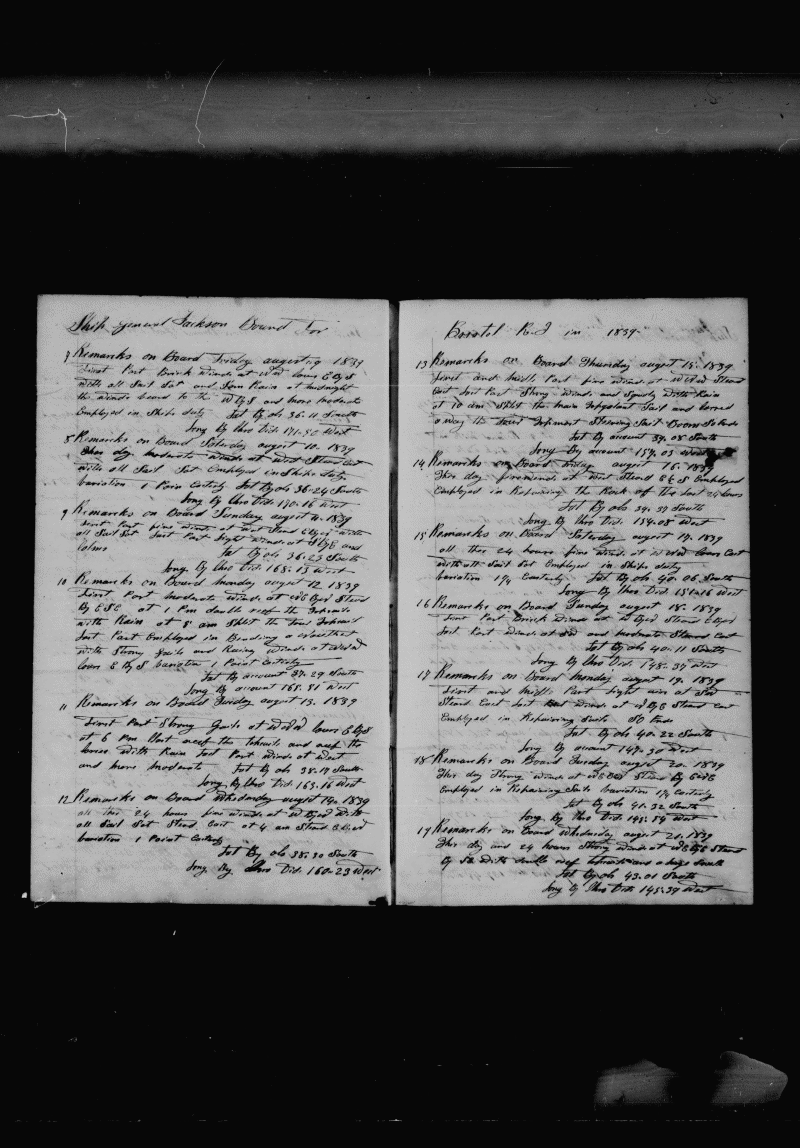 Ship General Jackson Bound For
7 Remarks on Board Friday august 9 1839
First Part Brisk winds at lowers E by S
with all Sail Sat and Som Rain at midnight
the winds hauld to the W by S and more moderate
Employed in Ships duty Lat By obs 36-11 South
Long By Chro Dist 171-50 West
8 Remarks on Board Saturday august 10. 1839
this day moderate winds at West Steard East
with all Sail Sat Employed in Ships duty
variation 1 Point Easterly Lat By obs 36-24 South
Long By Chro Dist 170-16 West
9 Remarks on Board Sunday august 11. 1839
First Part fine winds at Steard with
all Sail Sat Last Part light winds at and
Calms Lat By obs 36-23 South
Long By Chro Dist 168-13 West
10 Remarks on Board monday august 12 1839
First Part moderate winds at Steard
By ESE at 1 Pm double reef the Topsails
with Rain at 8 am Split the fore Topsail
Last Part Employed in Bending a Nother
with Strong gails and winds at
lowers E by S variation 1 Point Easterly
Lat By account 37-29 South
Long By account 165-51 West
11 Remarks on Board Tuesday august 13. 1839
First Part Strong Gails at lowers E by S
at 6 Pm reef the Topsails and reef the
with Rain Last Part winds at West
and more moderate Lat By obs 38-17 South
Long By Chro Dist 163-16 West
12 Remarks on Board Whedsday august 14. 1839
all this 24 hours fine winds at with
all Sail Sat Steard East at 4 am Steard
variation 1 Point Easterly
Lat By obs 38-30 South
Long By Chro Dist 160-23 West
Bristol R-I in 1839-
13 Remarks on Board Thursday august 15. 1839
First and midle Part fine winds at Steard
East Last Part Strong winds and Squaly with Rain
at 10 am Split the main Topgalant Sail and Carred
away the Fore Topmast Steering Sail Boom So Ends
Lat By account 39.08 South
Long By account 157.03 West
14 Remarks on Board Friday august 16. 1839
This day winds at West Steard E by S Employed
Employed in Repairing the of the Last 24 hours
Lat By obs 39-37 South
Long By Chro Dist 154-08 West
15 Remarks on Board Saturday august 17. 1839
all thes 24 hours fine winds at East
with all Sail Sat Employed in Ships duty
variation 1¼ Easterly Lat By obs 40.06 South
Long By Chro Dist 151-16 West
16 Remarks on Board Sunday august 18. 1839
First Part Brisk winds at Steard
Last Part winds at and moderate Steard East
Lat By obs 40-11 South
Long By Chro Dist 148-37 West
17 Remarks on Board Monday august 19. 1839
First and midle Part light at
Steard East Last winds at Steard East
Employed in Repairing Sails So Ends
Lat By obs 40-22 South
Long By account 147-30 West
18 Remarks on Board Tuesday august 20. 1839
this day Strong winds at Steard By
Employed in Repairing Sails Variation 1¼ Easterly
Lat By obs 41.32 South
Long By Chro Dist 145-54 West
19 Remarks on Board Whedsday august 21. 1839
This day and 24 hours Strong winds at Steard
by With double reef Topsails and a large South
Lat By ob 43.01 South
Long By Chro Dist 143-37 West